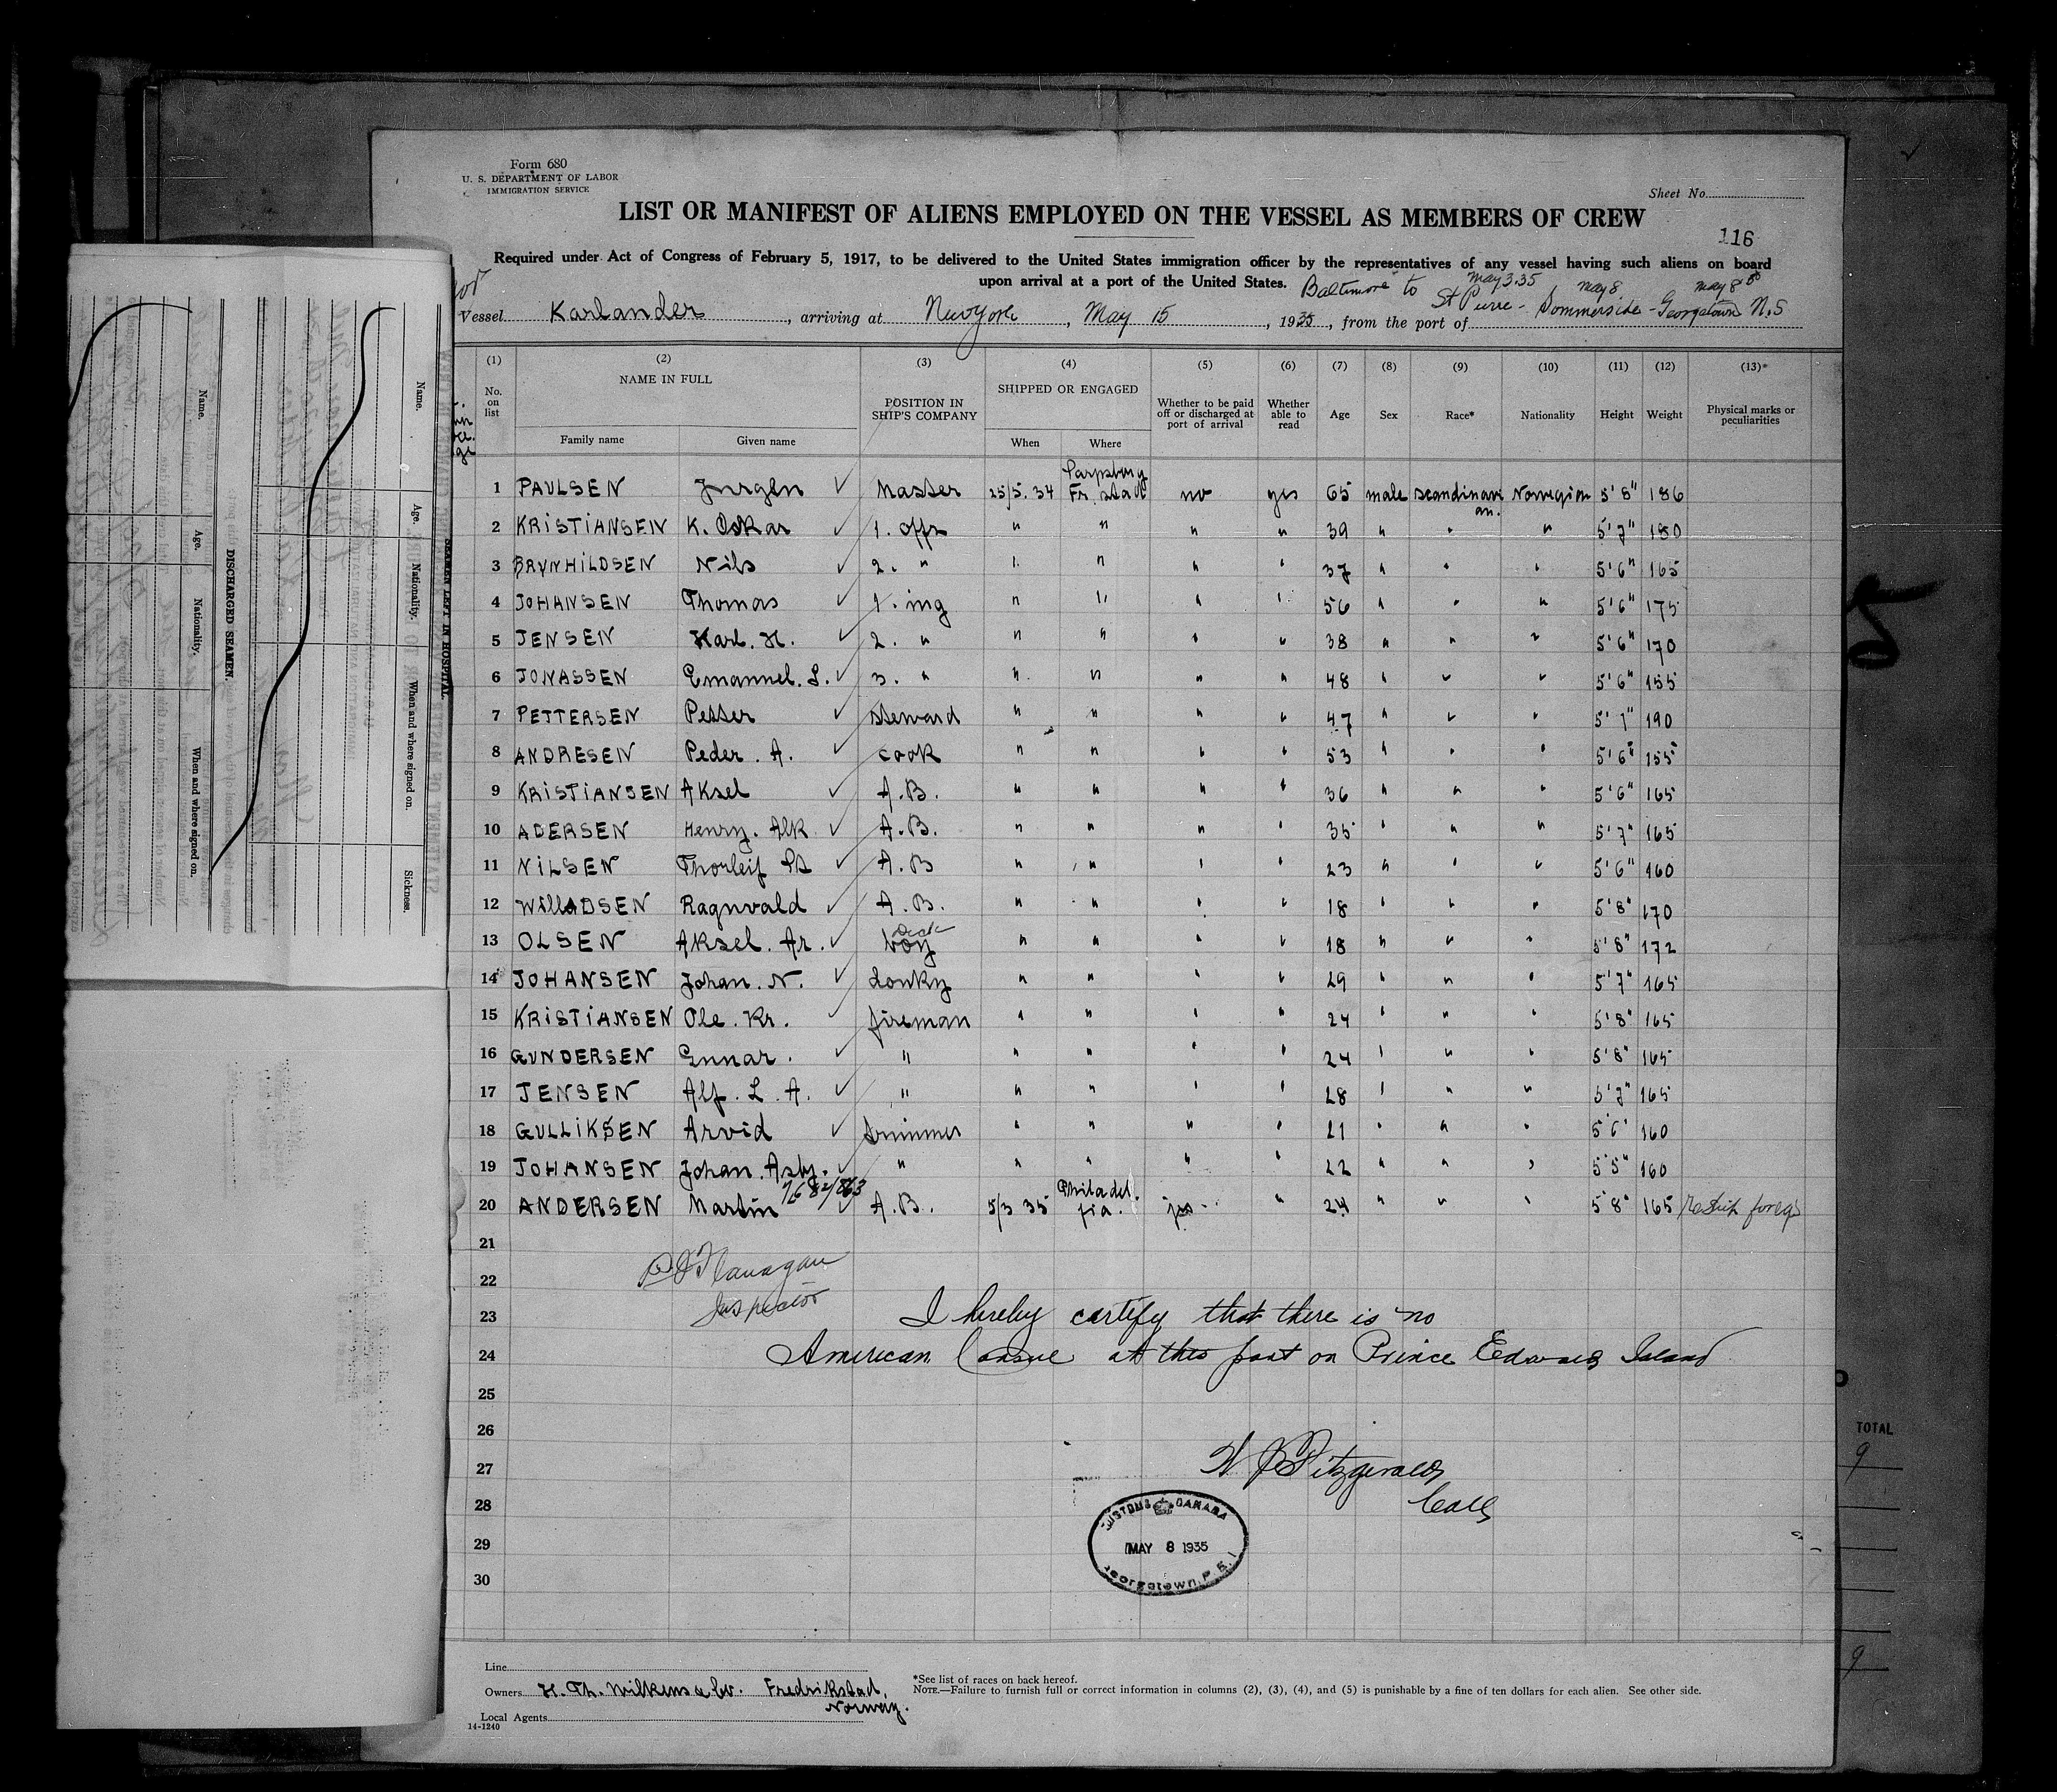 Form 680
U. S. DEPARTMENT OF LABOR
IMMIGRATION SERVICE
Sheet No.
LIST OR MANIFEST OF ALIENS EMPLOYED ON THE VESSEL AS MEMBERS OF CREW
116
Required under Act of Congress of February 5, 1917, to be delivered to the United States immigration officer by the representatives of any vessel having such aliens on board
upon arrival at a port of the United States. Baltimore to May 3.35 May 8 May 8th
Vessel Karlander, arriving at New York, May 15, 1935, from the port of St Pierre - Sommerside - Georgetown N.S
(1) (2) (3) (4) (5) (6) (7) (8) (9) (10) (11) (12) (13)*
No. on list NAME IN FULL POSITION IN SHIP'S COMPANY SHIPPED OR ENGAGED Whether to be paid off or discharged at port of arrival Whether able to read Age Sex Race* Nationality Height Weight Physical marks or peculiarities
Family name Given name When Where
1 PAULSEN Jurgen Master 25/5. 34 Sarpsborg Fr. stad no yes 65 male scandinavian. Norwegian 5'8" 186
2 KRISTIANSEN K. Oskar 1. offr " " " " 39 " " " 5'7" 180
3 BRYNHILDSEN Nils 2. " " " " " 37 " " " 5'6" 165
4 JOHANSEN Thomas 1. ing " " " " 56 " " " 5'6" 175
5 JENSEN Karl. H. 2. " " " " " 38 " " " 5'6" 170
6 JONASSEN Emanuel. L. 3. " " " " " 48 " " " 5'6" 155
7 PETTERSEN Petter Steward " " " " 47 " " " 5' 7" 190
8 ANDRESEN Peder. A. cook " " " " 53 " " " 5'6" 155
9 KRISTIANSEN Aksel A.B. " " " " 36 " " " 5'6" 165
10 ADERSEN Henry. Alk A.B. " " " " 35 " " " 5'7" 165
11 NILSEN Thorleif A.B " " " " 23 " " " 5'6" 160
12 WillADSEN Ragnvald A.B. " " " " 18 " " " 5'8" 170
13 OLSEN Aksel. Ar. Deck boy " " " " 18 " " " 5'8" 172
14 JOHANSEN Johan. N. donky " " " " 29 " " " 5'7" 165
15 KRISTIANSEN Ole. Kr. fireman " " " " 24 " " " 5'8" 165
16 GUNDERSEN Gunnar. " " " " " 24 " " " 5'8" 165
17 JENSEN Alf. L. A. " " " " " 28 " " " 5'7" 165
18 GULLIKSEN Arvid trimmer " " " " 21 " " " 5'6" 160
19 JOHANSEN Johan. Asbj. " " " " " 22 " " " 5'5" 160
20 ANDERSEN Martin A.B. 5/3 35 Philadelfia. yes " 24 " " " 5'8" 165 Reship foreign
21
22
23
24
25
26
27
28
29
30
P J Flanagan
Inspector
I hereby certify that there is no
American Consul at this port on Prince Edward Island
W J Fitzgerald
Coll
CUSTOMS CANADA
MAY 8 1935
Georgetown, P. E. I
Line
Owners H. Th. Wilkens & Co. Fredrikstad, Norway.
Local Agents
14-1240
*See list of races on back hereof.
NOTE.—Failure to furnish full or correct information in columns (2), (3), (4), and (5) is punishable by a fine of ten dollars for each alien. See other side.
SEAMEN LEFT IN HOSPITAL
Name. Age. Nationality. When and where signed on. Sickness.
DISCHARGED SEAMEN.
Name. Age. Nationality. When and where signed on.
TOTAL
9
9